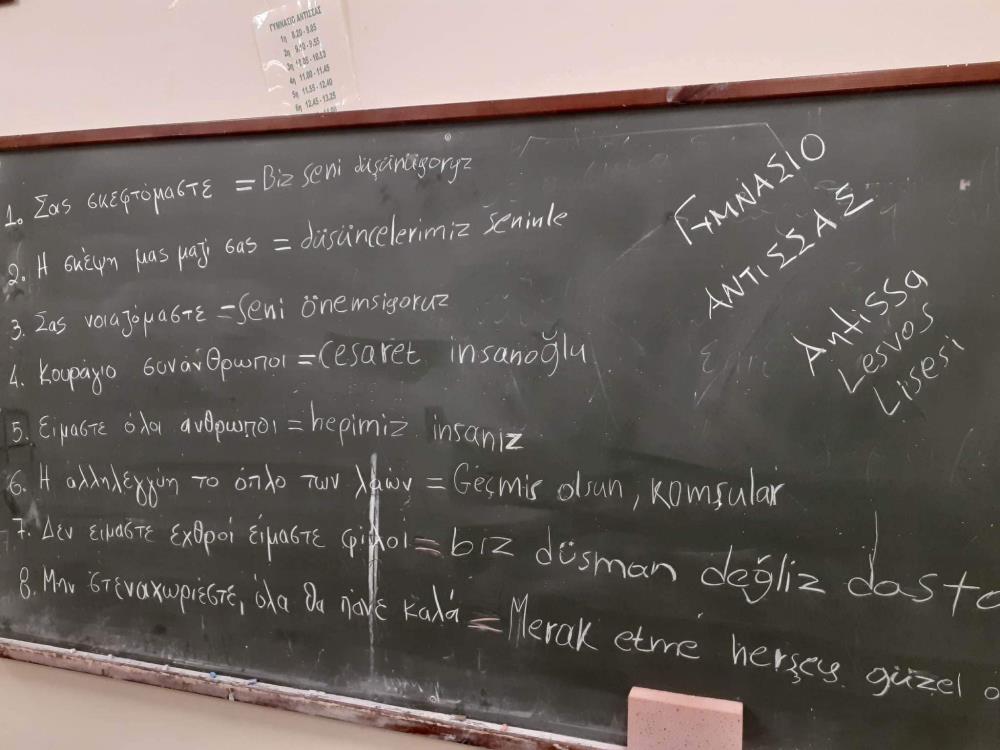 ΓΥΜΝΑΣΙΟ ΑΝΤΙΣΣΑΣ
1η 8.20 - 9.05
2η 9.10 - 9.55
3η 10.05 - 10.50
4η 11.00 - 11.45
5η 11.55 - 12.40
6η 12.45 - 13.25
1. Σας σκεφτόμαστε = Biz seni düşünüyoruz
2. Η σκέψη μας μαζί σας = düşüncelerimiz seninle
3. Σας νοιαζόμαστε = Seni önemsiyoruz
4. Κουράγιο συνάνθρωποι = Cesaret insanoğlu
5. Είμαστε όλοι άνθρωποι = hepimiz insanız
6. Η αλληλεγγύη το όπλο των λαών = Geçmiş olsun, komşular
7. Δεν είμαστε εχθροί είμαστε φίλοι = biz düşman değliz dosto
8. Μην στεναχωριέστε, όλα θα πάνε καλά = Merak etme herşey güzel o
ΓΥΜΝΑΣΙΟ
ΑΝΤΙΣΣΑΣ
Antissa
Lesvos
Lisesi